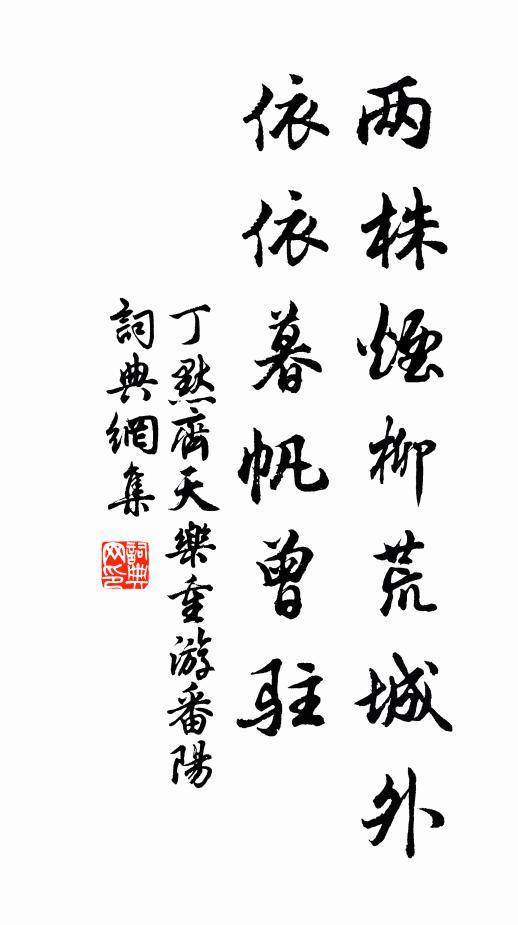 两株煙柳荒城外
依依暮帆曾駐
丁默齊天樂重游番陽
詞典網集
詞典网印